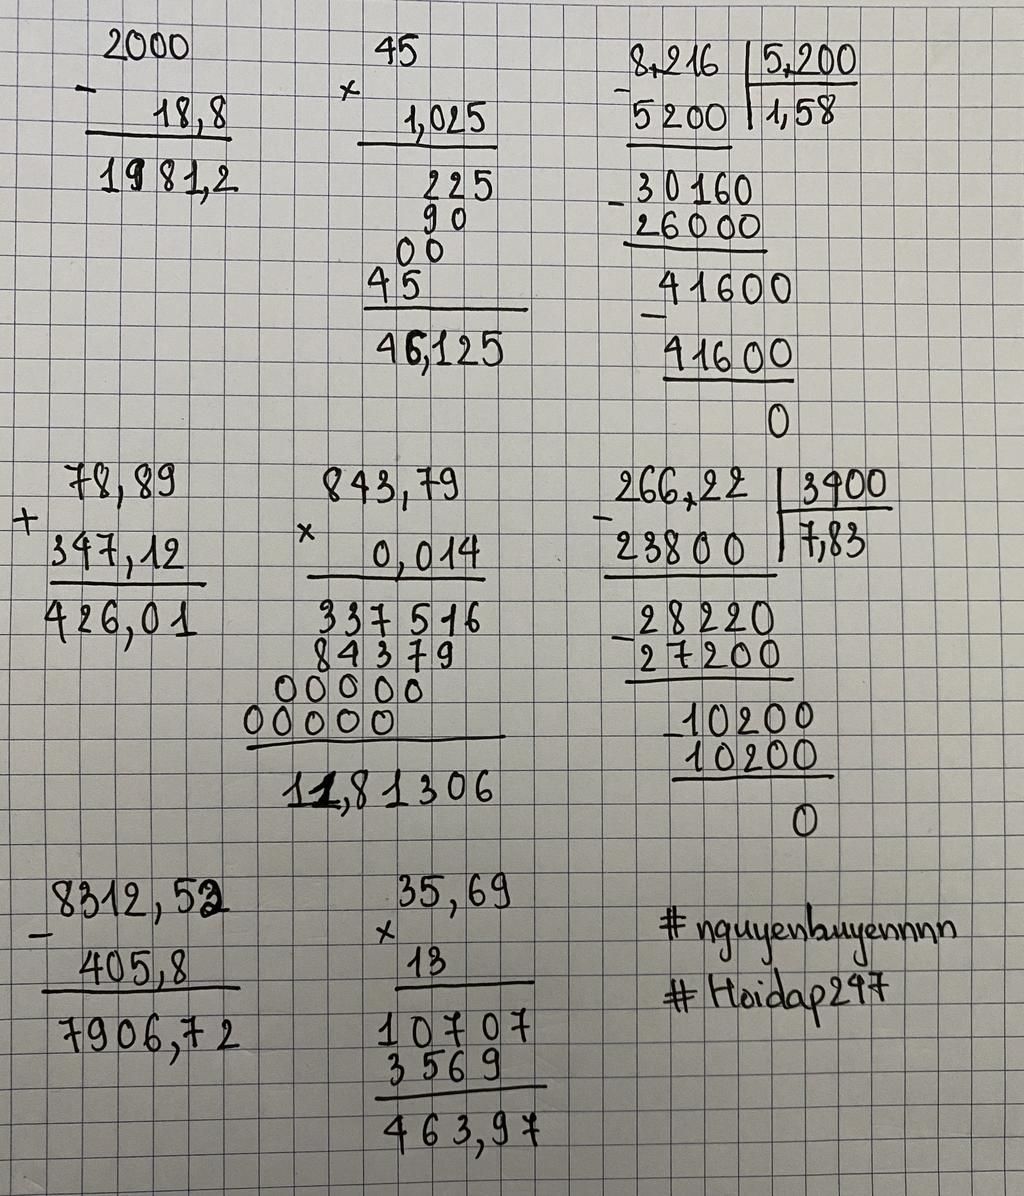 2000
- 18,8
1981,2
45
× 1,025
225
90
00
45
46,125
8,216 | 5,200
- 5200 | 1,58
- 30160
26000
41600
-
41600
0
78,89
+
347,12
426,01
843,79
× 0,014
337516
84379
00000
00000
11,81306
266,22 | 3400
- 23800 | 7,83
- 28220
27200
- 10200
10200
0
8312,52
-
405,8
7906,72
35,69
×
13
10707
3569
463,97
# nguyenhuyennnn
# Hoidap247